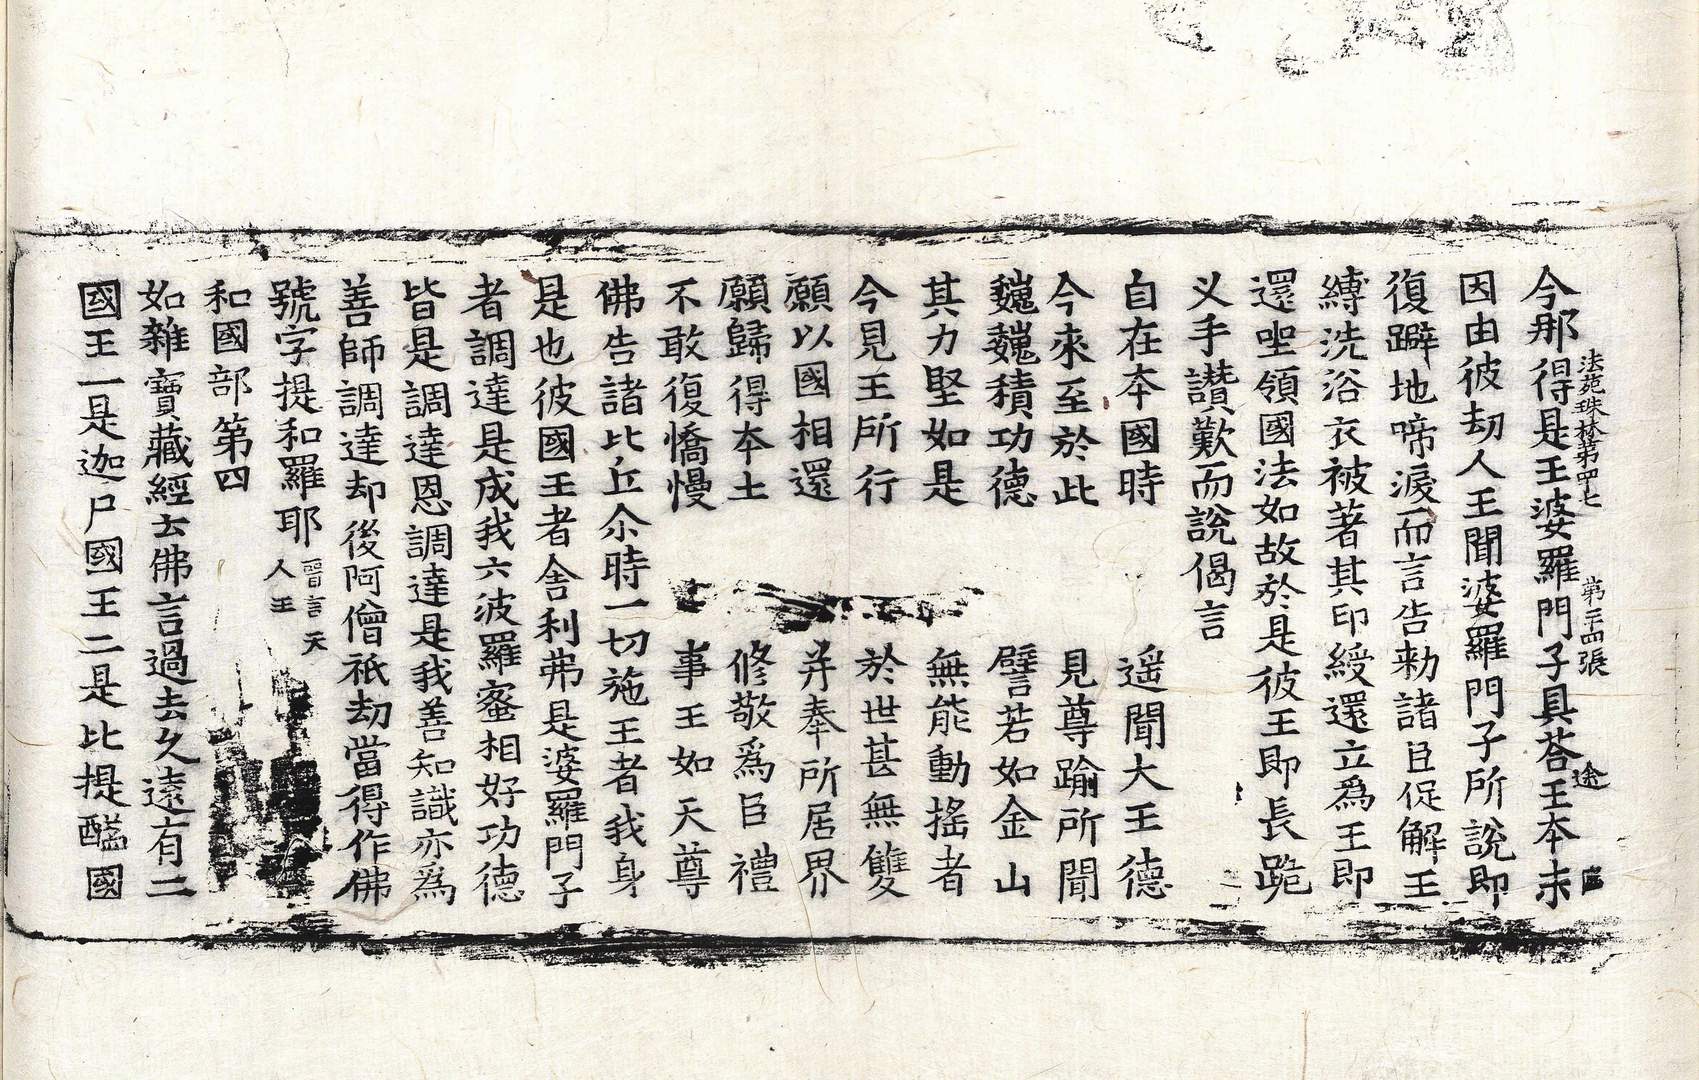 法苑珠林第四七 第二十四張 途
今那得是王婆羅門子具荅王本末
因由彼劫人王聞婆羅門子所說即
復躃地啼淚而言告勑諸臣促解王
縛洗浴衣被著其印綬還立爲王即
還坐領國法如故於是彼王即長跪
叉手讚歎而說偈言
自在本國時 遥聞大王德
今來至於此 見尊踰所聞
巍巍積功德 譬若如金山
其力堅如是 無能動揺者
今見王所行 於世甚無雙
願以國相還 并奉所居界
願歸得本土 修敬爲臣禮
不敢復憍慢 事王如天尊
佛告諸比丘尒時一切施王者我身
是也彼國王者舍利弗是婆羅門子
者調達是成我六波羅蜜相好功德
皆是調達恩調達是我善知識亦爲
善師調達却後阿僧祇劫當得作佛
號字提和羅耶 晉言天人王
和國部第四
如雜寶藏經云佛言過去久遠有二
國王一是迦尸國王二是比提醯國